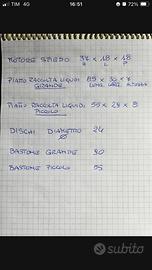 TIM 4G
16:51
MOTORE SPIEDO 37 x 18 x 18
PIATTO RACCOLTA LIQUIDI
GRANDE
PIATTO RACCOLTA LIQUIDI 55 x 28 x 8
PICCOLO
DISCHI DIAMETRO 24
BASTONE GRANDE 90
BASTONE PICCOLO 55
subito